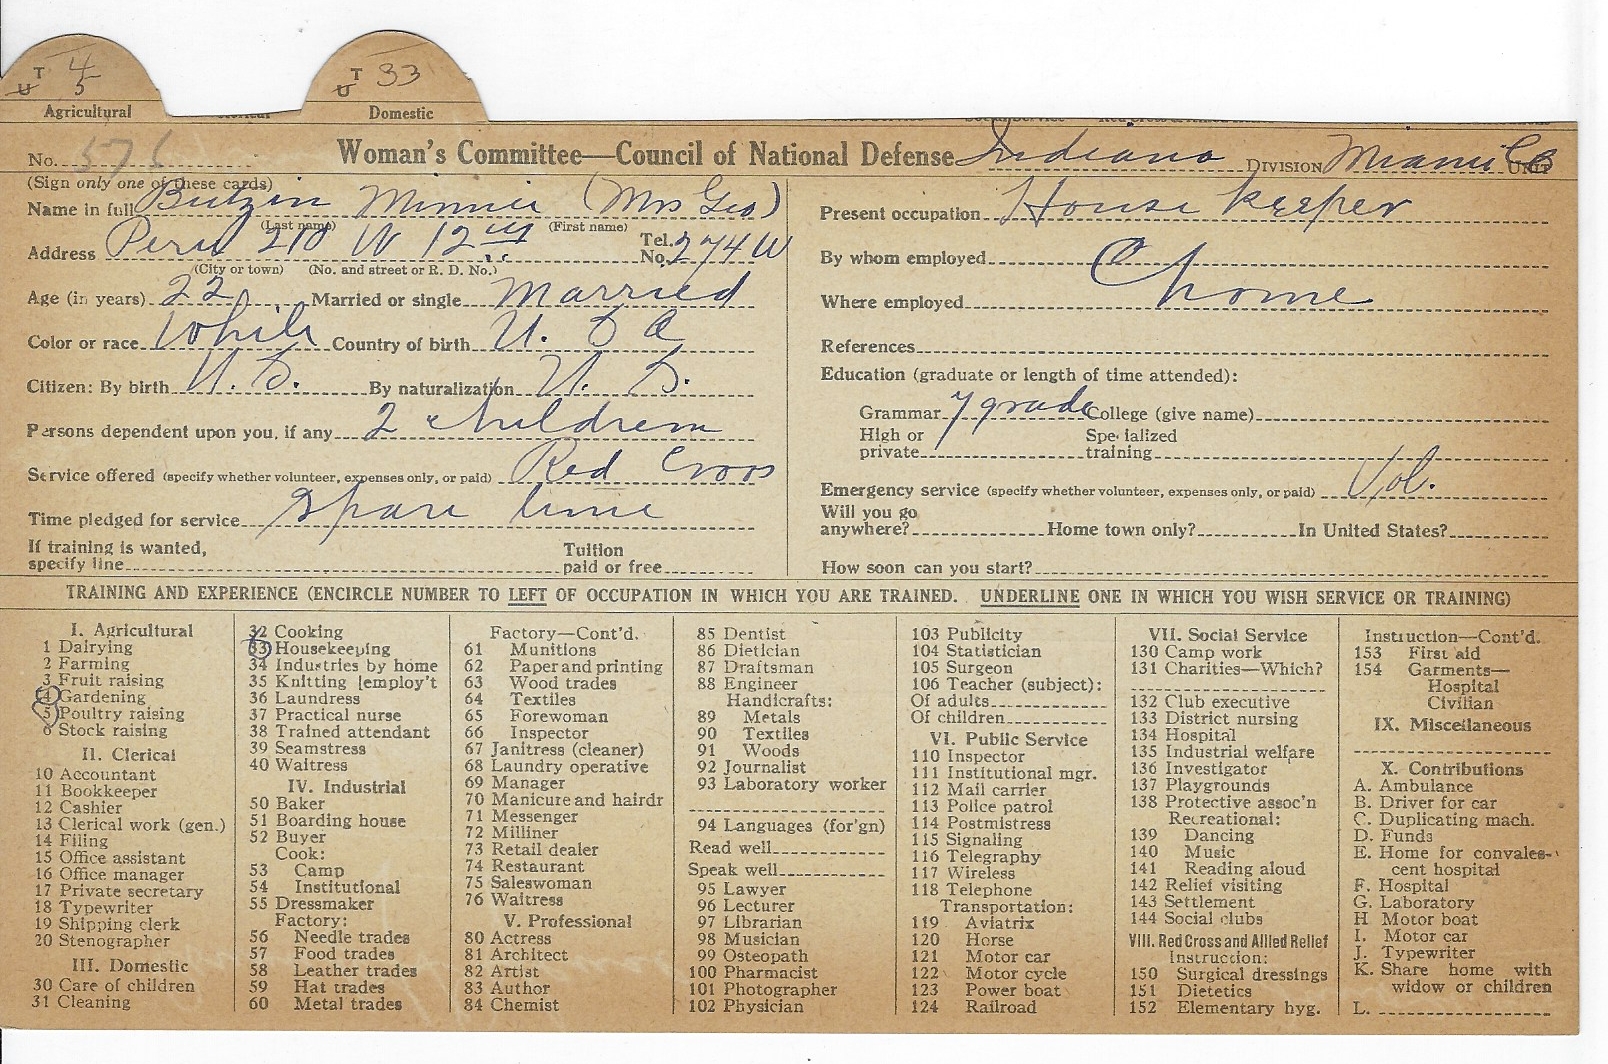 T 4
U 5
Agricultural
T 33
U
Domestic
No. 576
Woman's Committee—Council of National Defense Indiana DIVISION Miami Co UNIT
(Sign only one of these cards)
Name in full Butzin Minnie (Mrs Geo)
(Last name) (First name)
Address Peru 210 W 12 Tel. No. 274 W
(City or town) (No. and street or R. D. No.)
Age (in years) 22 Married or single Married
Color or race White Country of birth U. S A
Citizen: By birth U. S. By naturalization U. S.
Persons dependent upon you, if any 2 children
Service offered (specify whether volunteer, expenses only, or paid) Red Cross
Time pledged for service Spare time
If training is wanted, specify line Tuition paid or free
Present occupation House keeper
By whom employed
Where employed home
References
Education (graduate or length of time attended):
Grammar 7 grade College (give name)
High or private Specialized training
Emergency service (specify whether volunteer, expenses only, or paid) Vol.
Will you go anywhere? Home town only? In United States?
How soon can you start?
TRAINING AND EXPERIENCE (ENCIRCLE NUMBER TO LEFT OF OCCUPATION IN WHICH YOU ARE TRAINED. UNDERLINE ONE IN WHICH YOU WISH SERVICE OR TRAINING)
I. Agricultural
1 Dairying
2 Farming
3 Fruit raising
4 Gardening
5 Poultry raising
6 Stock raising
II. Clerical
10 Accountant
11 Bookkeeper
12 Cashier
13 Clerical work (gen.)
14 Filing
15 Office assistant
16 Office manager
17 Private secretary
18 Typewriter
19 Shipping clerk
20 Stenographer
III. Domestic
30 Care of children
31 Cleaning
32 Cooking
33 Housekeeping
34 Industries by home
35 Knitting [employ't
36 Laundress
37 Practical nurse
38 Trained attendant
39 Seamstress
40 Waitress
IV. Industrial
50 Baker
51 Boarding house
52 Buyer
Cook:
53 Camp
54 Institutional
55 Dressmaker
Factory:
56 Needle trades
57 Food trades
58 Leather trades
59 Hat trades
60 Metal trades
Factory—Cont'd.
61 Munitions
62 Paper and printing
63 Wood trades
64 Textiles
65 Forewoman
66 Inspector
67 Janitress (cleaner)
68 Laundry operative
69 Manager
70 Manicure and hairdr
71 Messenger
72 Milliner
73 Retail dealer
74 Restaurant
75 Saleswoman
76 Waitress
V. Professional
80 Actress
81 Architect
82 Artist
83 Author
84 Chemist
85 Dentist
86 Dietician
87 Draftsman
88 Engineer
Handicrafts:
89 Metals
90 Textiles
91 Woods
92 Journalist
93 Laboratory worker
94 Languages (for'gn)
Read well
Speak well
95 Lawyer
96 Lecturer
97 Librarian
98 Musician
99 Osteopath
100 Pharmacist
101 Photographer
102 Physician
103 Publicity
104 Statistician
105 Surgeon
106 Teacher (subject):
Of adults
Of children
VI. Public Service
110 Inspector
111 Institutional mgr.
112 Mail carrier
113 Police patrol
114 Postmistress
115 Signaling
116 Telegraphy
117 Wireless
118 Telephone
Transportation:
119 Aviatrix
120 Horse
121 Motor car
122 Motor cycle
123 Power boat
124 Railroad
VII. Social Service
130 Camp work
131 Charities—Which?
132 Club executive
133 District nursing
134 Hospital
135 Industrial welfare
136 Investigator
137 Playgrounds
138 Protective assoc'n
Recreational:
139 Dancing
140 Music
141 Reading aloud
142 Relief visiting
143 Settlement
144 Social clubs
VIII. Red Cross and Allied Relief
Instruction:
150 Surgical dressings
151 Dietetics
152 Elementary hyg.
Instruction—Cont'd.
153 First aid
154 Garments—
Hospital
Civilian
IX. Miscellaneous
X. Contributions
A. Ambulance
B. Driver for car
C. Duplicating mach.
D. Funds
E. Home for convales-
cent hospital
F. Hospital
G. Laboratory
H Motor boat
I. Motor car
J. Typewriter
K. Share home with
widow or children
L.